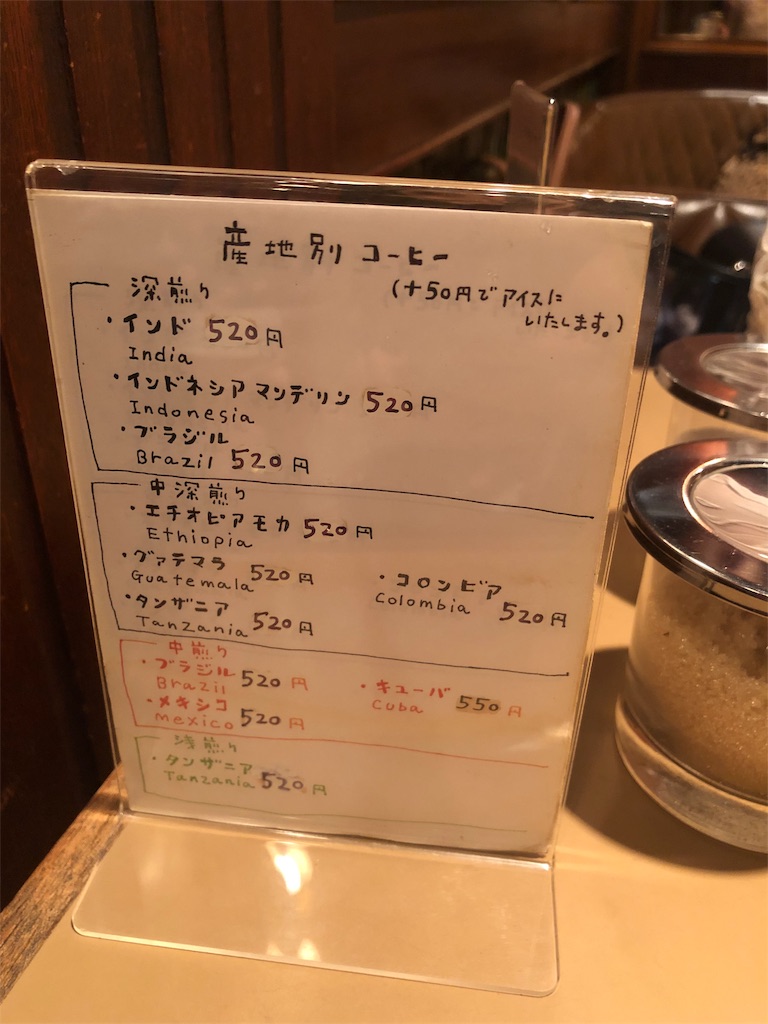 産地別 コーヒー
深煎り
(+50円でアイスに
いたします。)
・インド 520円
India
・インドネシア マンデリン 520円
Indonesia
・ブラジル
Brazil 520円
中深煎り
・エチオピアモカ 520円
Ethiopia
・グァテマラ 520円
Guatemala
・コロンビア
Colombia 520円
・タンザニア
Tanzania 520円
中煎り
・ブラジル 520円
Brazil
・キューバ 550円
Cuba
・メキシコ 520円
mexico
浅煎り
・タンザニア
Tanzania 520円